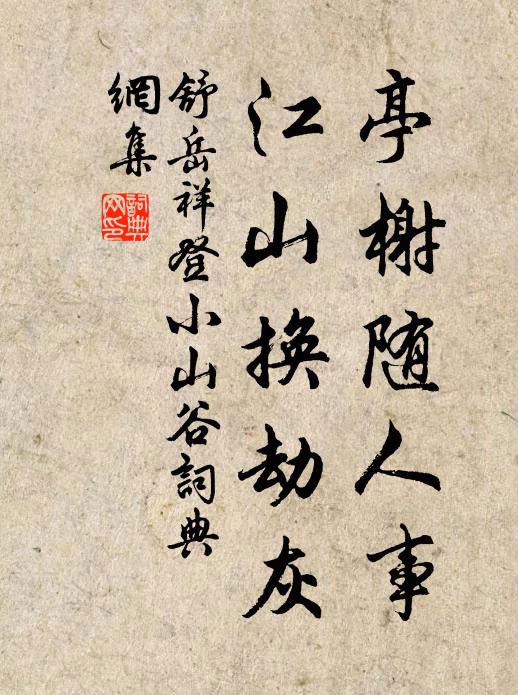 亭榭随人事
江山換劫灰
舒岳祥登小山谷詞典
網集
詞典網印